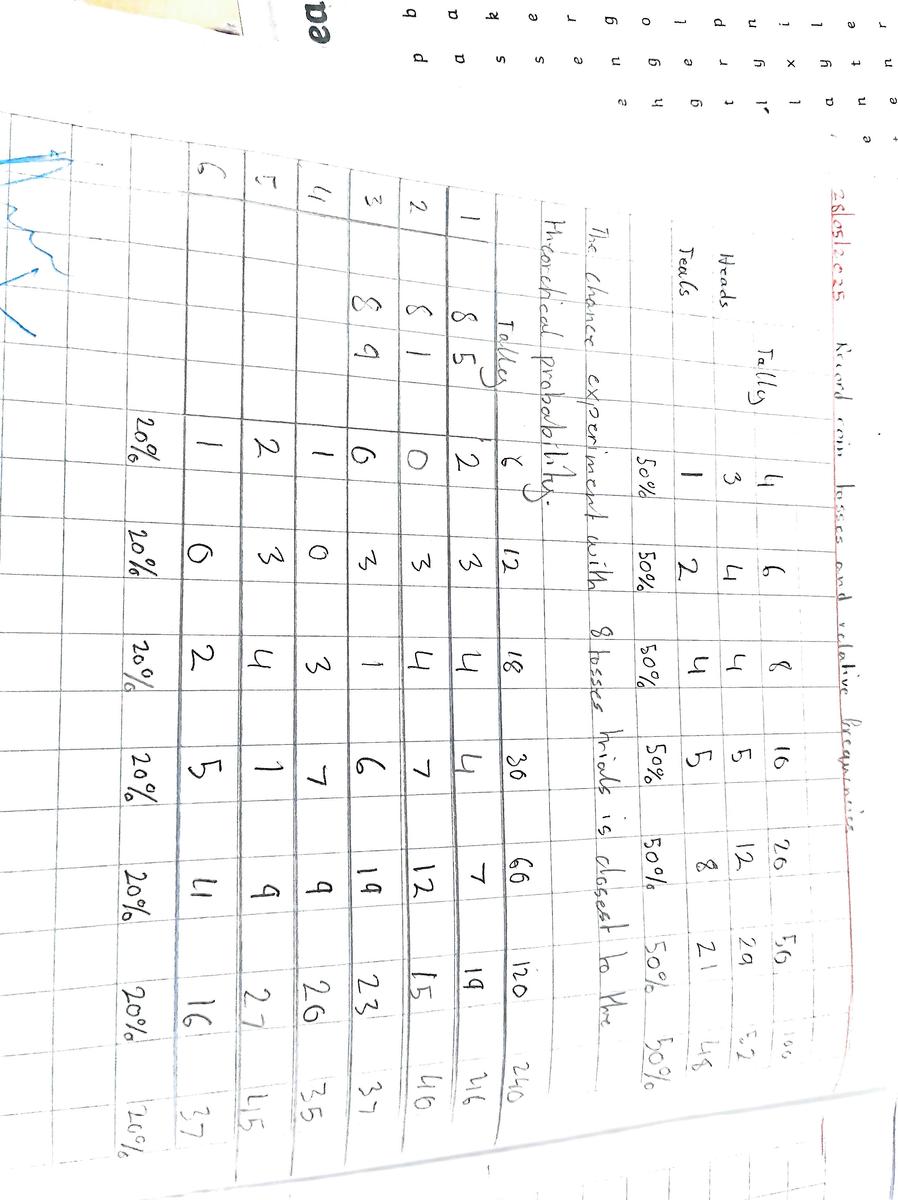 28/05/2025 Record coin tosses and relative frequencies
Tally 4 6 8 10 20 50 100
Heads 3 4 4 5 12 29 52
Teals 1 2 4 5 8 21 48
50% 50% 50% 50% 50% 50% 50%
The chance experiment with 8 tosses trials is closest to the
theoretical probability.
Tally 6 12 18 30 60 120 240
1 8 5 2 3 4 4 7 19 46
2 8 1 0 3 4 7 12 15 40
3 8 9 0 3 1 6 19 23 37
4 1 0 3 7 9 20 35
5 2 3 4 1 9 27 45
6 1 0 2 5 4 16 37
20% 20% 20% 20% 20% 20% 20%
ea